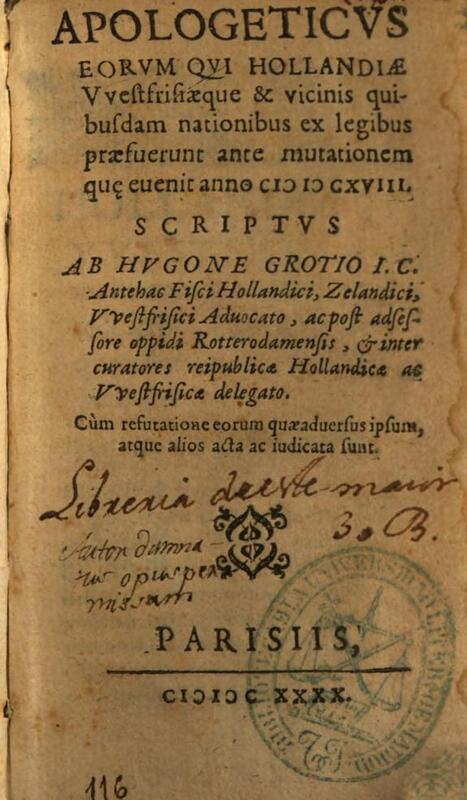 APOLOGETICVS
EORVM QVI HOLLANDIÆ
Vvestfrisiæque & vicinis qui-
busdam nationibus ex legibus
præfuerunt ante mutationem
quę euenit anno CIↃ IↃ CXVIII.
SCRIPTVS
AB HVGONE GROTIO I. C.
Antehac Fisci Hollandici, Zelandici,
Vvestfrisici Aduocato, ac post adses-
sore oppidi Rotterodamensis, & inter
curatores reipublicæ Hollandicæ ac
Vvestfrisicæ delegato.
Cùm refutatione eorum quæ aduersus ipsum,
atque alios acta ac iudicata sunt.
Libreria maior
3. B.
Autor damna-
tus opus per
missum
PARISIIS,
CIↃIↃC XXXX.
116